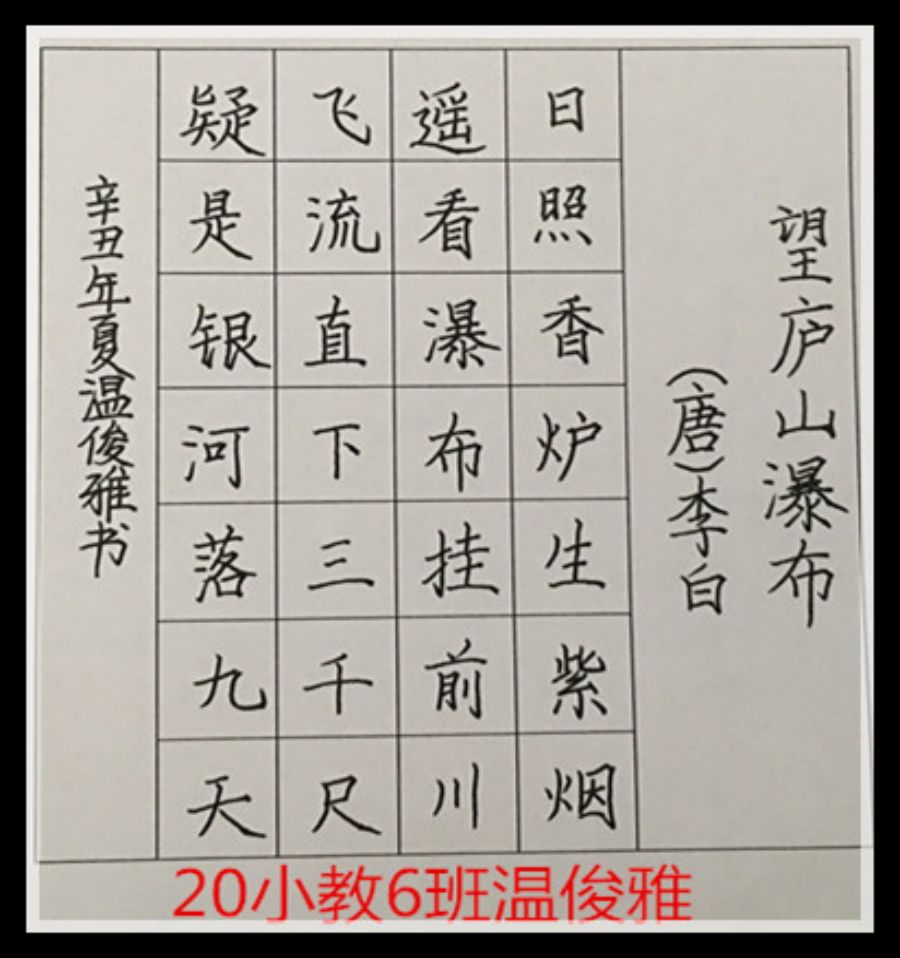 望庐山瀑布
(唐)李白
日照香炉生紫烟
遥看瀑布挂前川
飞流直下三千尺
疑是银河落九天
辛丑年夏温俊雅书
20小教6班温俊雅